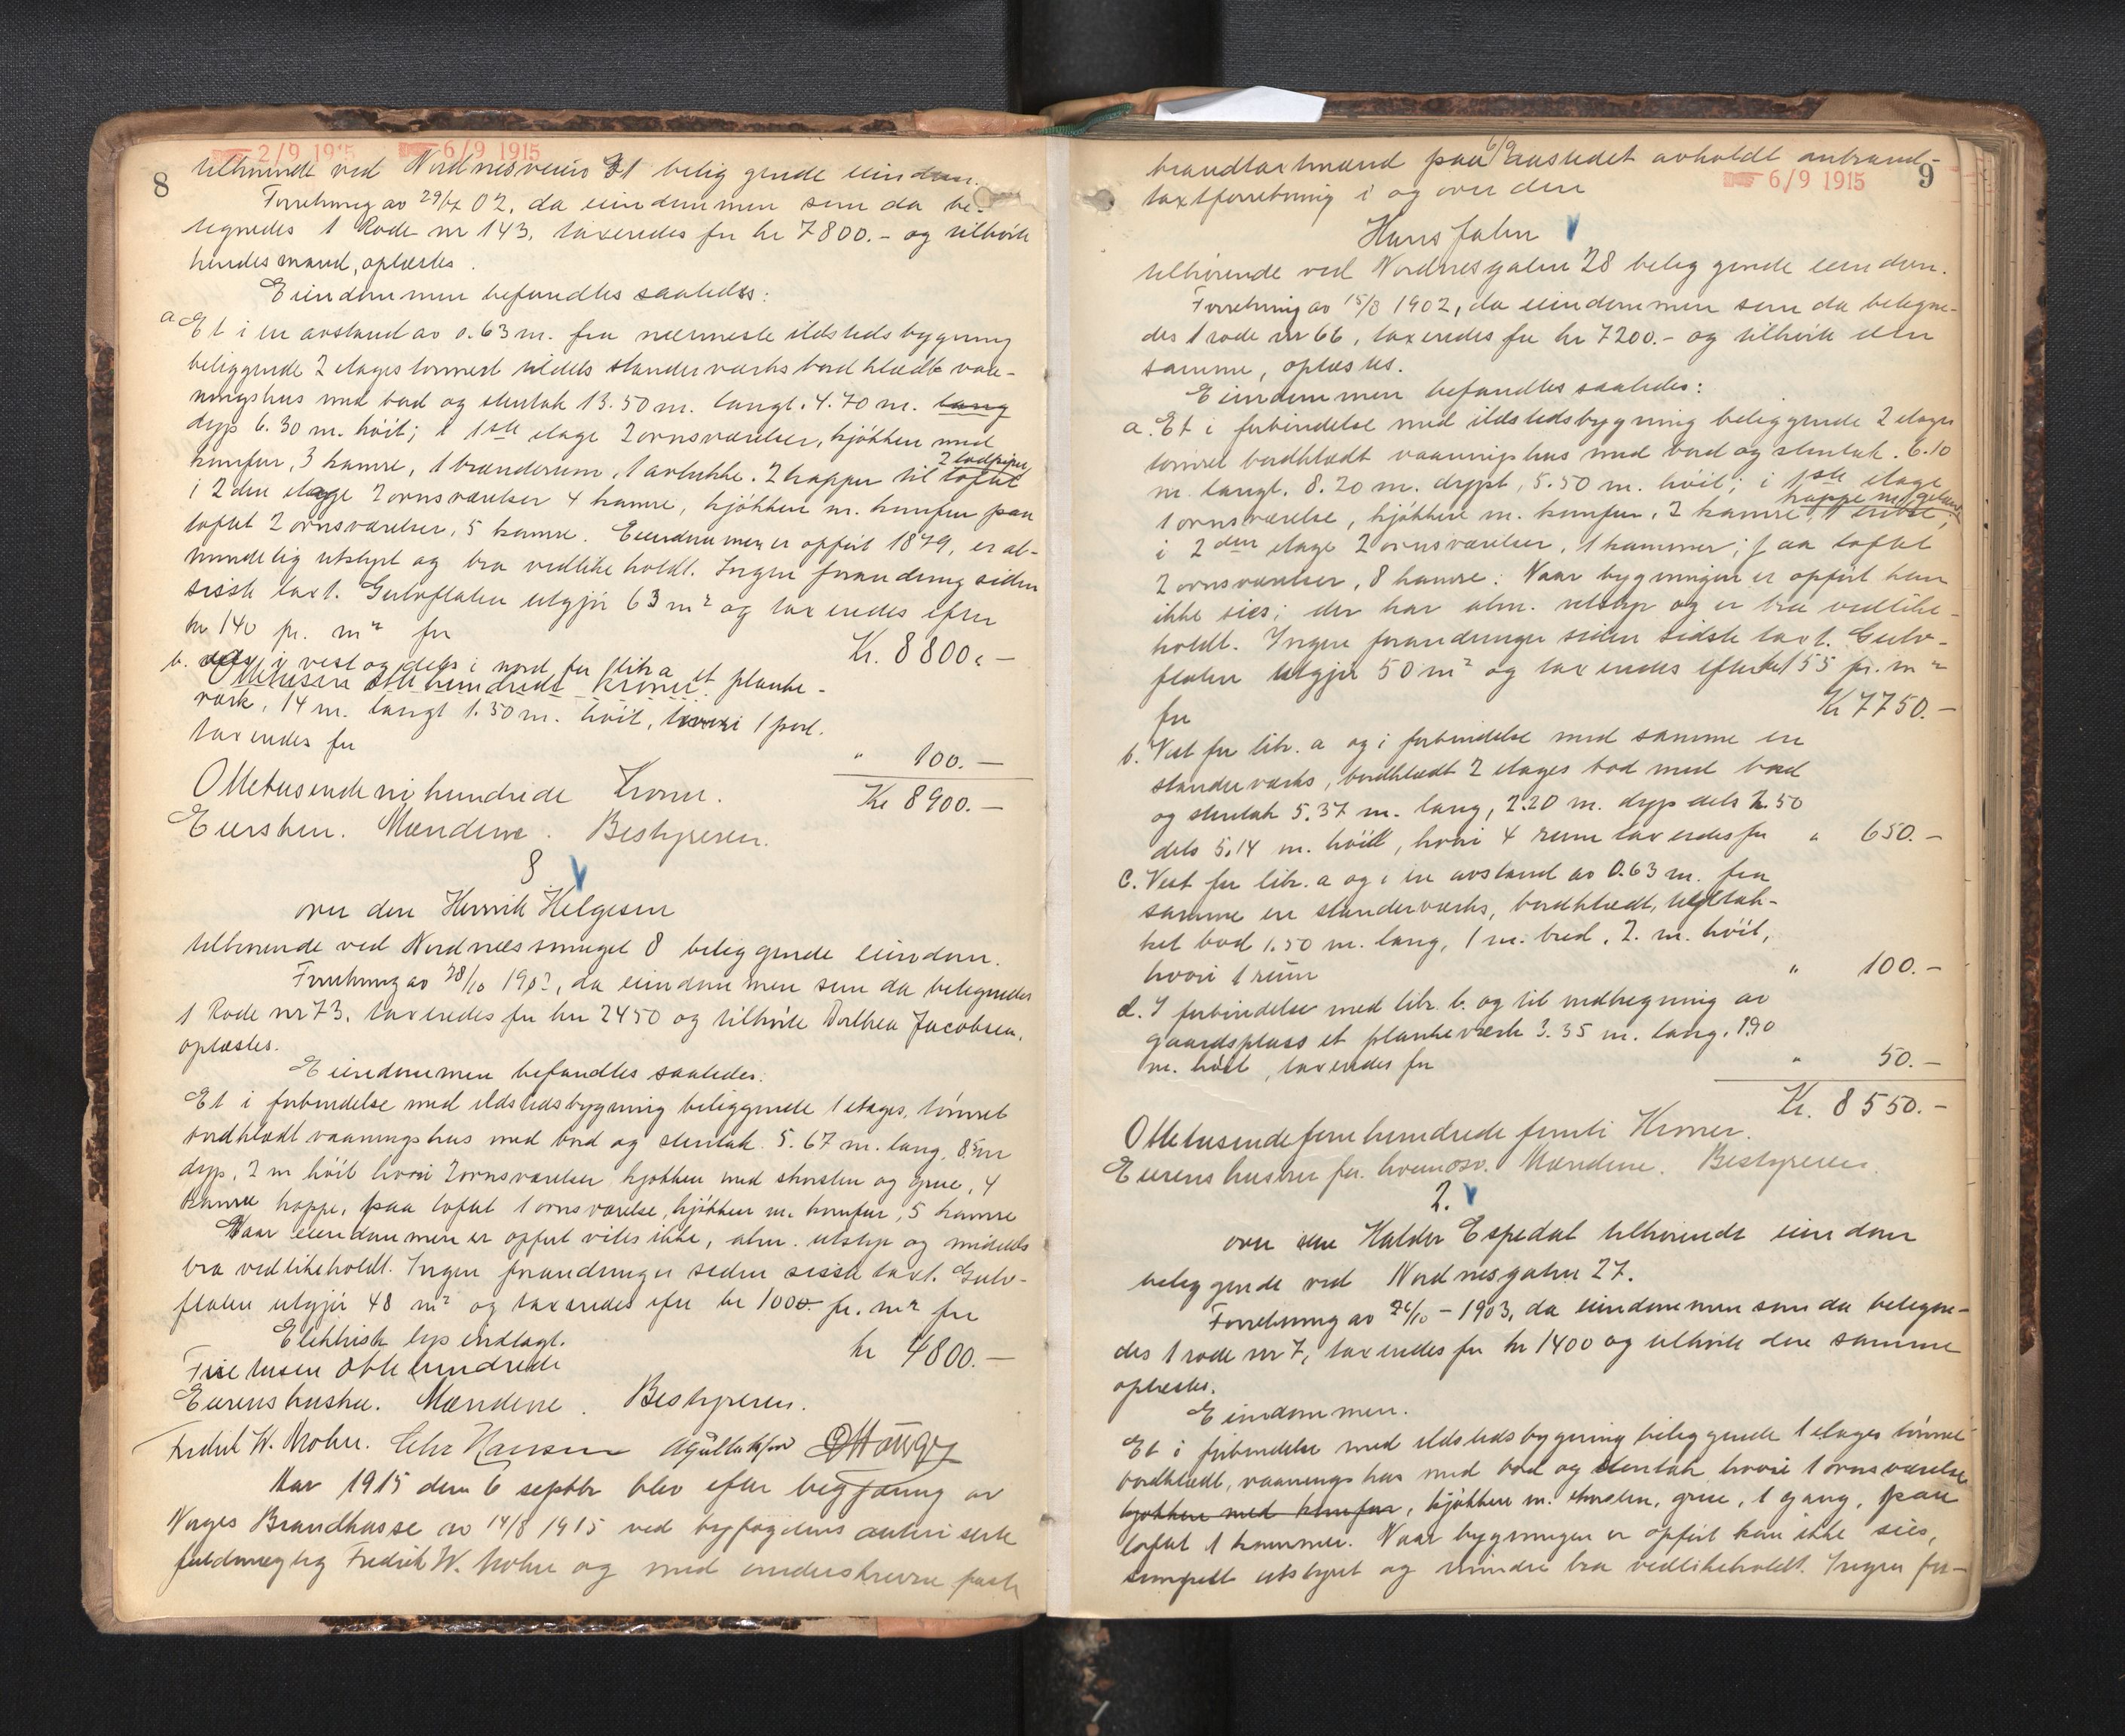 2/9 1915 6/9 1915
8
tilhørende ved Nordnesveien 31 belig gende eiendom.
Forretning av 29/ 02, da eiendommen som da be-
tegnedes 1 Rode nr 143, taxeredes for kr 7800.- og tilhørte
hendes mand, oplæstes.
Eiendommen befandtes saaledes:
a Et i en avstand av 0.63 m. fra nærmeste ildstedsbygning
beliggende 2 etages tømret tildels standerverks bordklædt vaa-
ningshus med bord og stentak 13.50 m. langt. 4.70 m. lang
dyp 6.30 m. høit; i 1ste etage 2 ornsværelser, kjøkken med
komfur, 3 kamre, 1 brænderum, 1 avlukke. 2 trapper til loftet
i 2den etage 2 ornsværelser 4 kamre, kjøkken m. komfur paa
loftet 2 ornsværelser, 5 kamre. Eiendommen er opført 1879, er al-
mindelig utstyrt og bra vedlikeholdt. Ingen forandring siden
sisste taxt. Gulvflaten utgjør 63 m² og taxeredes efter
kr 140 pr. m² for
Kr. 8800.-
b. dels i vest og dels i nord for litra a et planke-
Ottetusen otte hundrede kroner
værk, 14 m. langt 1.30 m. høit, hvori 1 port.
taxeredes for
" 100.-
Ottetusende ni hundrede Kroner.
Kr 8900.-
Eiersken. Mændene. Bestyreren.
8
over den Henrik Helgesen
tilhørende ved Nordnæssmuget 8 beliggende eiendom.
Forretning av 28/10 1903, da eiendommen som da betegnedes
1 Rode nr 73, taxeredes for kr 2450 og tilhørte Dorthea Jacobsen,
oplæstes.
Eiendommen befandtes saaledes:
Et i forbindelse med ildstedsbygning beliggende 1 etages, tømret
bordklædt vaaningshus med bord og stentak 5.67 m. lang, 8.  m
dyp, 2 m høit hvori 2 ornsværelser kjøkken med skorsten og grue, 4
kamre trappe, paa loftet 1 ornsværelse, kjøkken m. komfur, 5 kamre
Naar eiendommen er opført vites ikke, alm. utstyr og middels
bra vedlikeholdt. Ingen forandringer siden sisste taxt. Gulv-
flaten utgjør 48 m² og taxeredes efter kr 100 pr. m² for
Elektrisk lys indlagt.
kr 4800.-
Fire tusen otte hundrede
Eierens hustru. Mændene. Bestyreren.
Fredrik W. Mohn. Chr Hansen
Aar 1915 den 6 septbr blev efter begjæring av
Norges Brandkasse av 14/8 1915 ved byfogdens autoriserte
fuldmægtig Fredrik W. Mohn og med underskrevne faste
brandtaxtmænd paa 6/9 aastedet avholdt ombrand-
6/9 1915
9
taxtforretning i og over den
Hans Jahn
tilhørende ved Nordnesgaten 28 beliggende eiendom.
Forretning av 15/8 1902, da eiendommen som da betegne-
des 1 rode nr 66, taxeredes for kr 7200.- og tilhørte den
samme, oplæstes.
Eiendommen befandtes saaledes:
a. Et i forbindelse med ildstedsbygning beliggende 2 etages
tømret bordklædt vaaningshus med bord og stentak. 6.10
m. langt. 8.20 m. dypt, 5.50 m. høit; i 1ste etage
1 ornsværelse, kjøkken m. komfur, 2 kamre,
i 2den etage 2 ornsværelser, 1 kammer; paa loftet
2 ornsværelser, 8 kamre: Naar bygningen er opført kan
ikke sies; den har alm. utstyr og er bra vedlike-
holdt. Ingen forandringer siden sidste taxt. Gulv-
flaten utgjør 50 m² og taxeredes efter kr 155 pr. m²
for
Kr 7750.-
b. Vest for litr. a og i forbindelse med samme en
standerverks, bordklædt 2 etages bod med bord
og stentak 5.37 m. lang, 2.20 m. dyp dels 2.50
dels 5.14 m. høit, hvori 4 rum taxeredes for
" 650.-
c. Vest for litr. a og i en avstand av 0.63 m. fra
samme en standerverks, bordklædt, teglstak-
ket bod 1.50 m. lang, 1 m. bred, 2. m. høit,
hvori 1 rum
" 100.-
d. I forbindelse med litr. b. og til indhegning av
gaardsplass et plankeværk 3.35 m. lang, 1.90
m. høit, taxeredes for
" 50.-
Kr. 8550.-
Ottetusende fem hundrede femti Kroner.
Eierens hustru for. hvemosv. Mændene. Bestyreren.
2.
over den Haldor Espedal tilhørende eiendom
beliggende ved Nordnesgaten 27.
Forretning av 26/10 - 1903, da eiendommen som da betegne-
des 1 rode nr 7, taxeredes for kr 1400 og tilhørte den samme
oplæstes.
Eiendommen.
Et i forbindelse med ildstedsbygning beliggende 1 etages tømret
bordklædt, vaaningshus med bord og stentak hvori 1 ornsværelse
kjøkken med komfur, kjøkken m. skorsten, grue, 1 gang, paa
loftet 1 kammer. Naar bygningen er opført kan ikke sies,
simpelt utstyret og mindre bra vedlikeholdt. Ingen for-